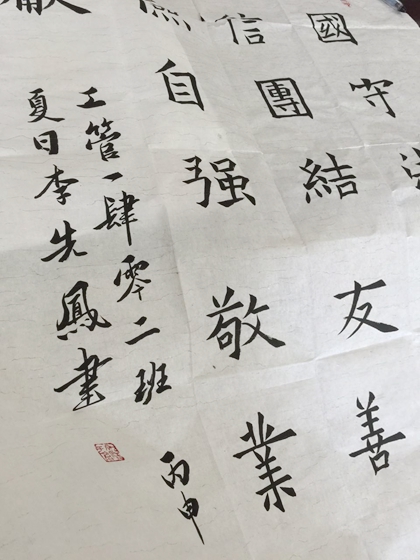 國守
信團結友善
自强敬業
獻
工管一肆零二班丙申
夏日李先鳳書